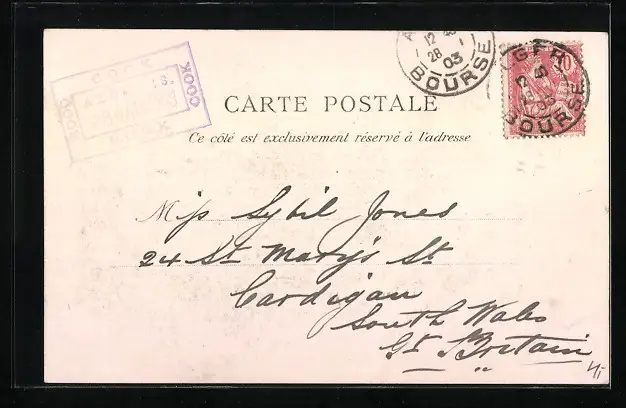 COOK
COOK
COOK
12
28
03
BOURSE
BOURSE
10
CARTE POSTALE
Ce côté est exclusivement réservé à l'adresse
Miss Sybil Jones
24 St Mary's St
Cardigan
South Wales
Gt Britain